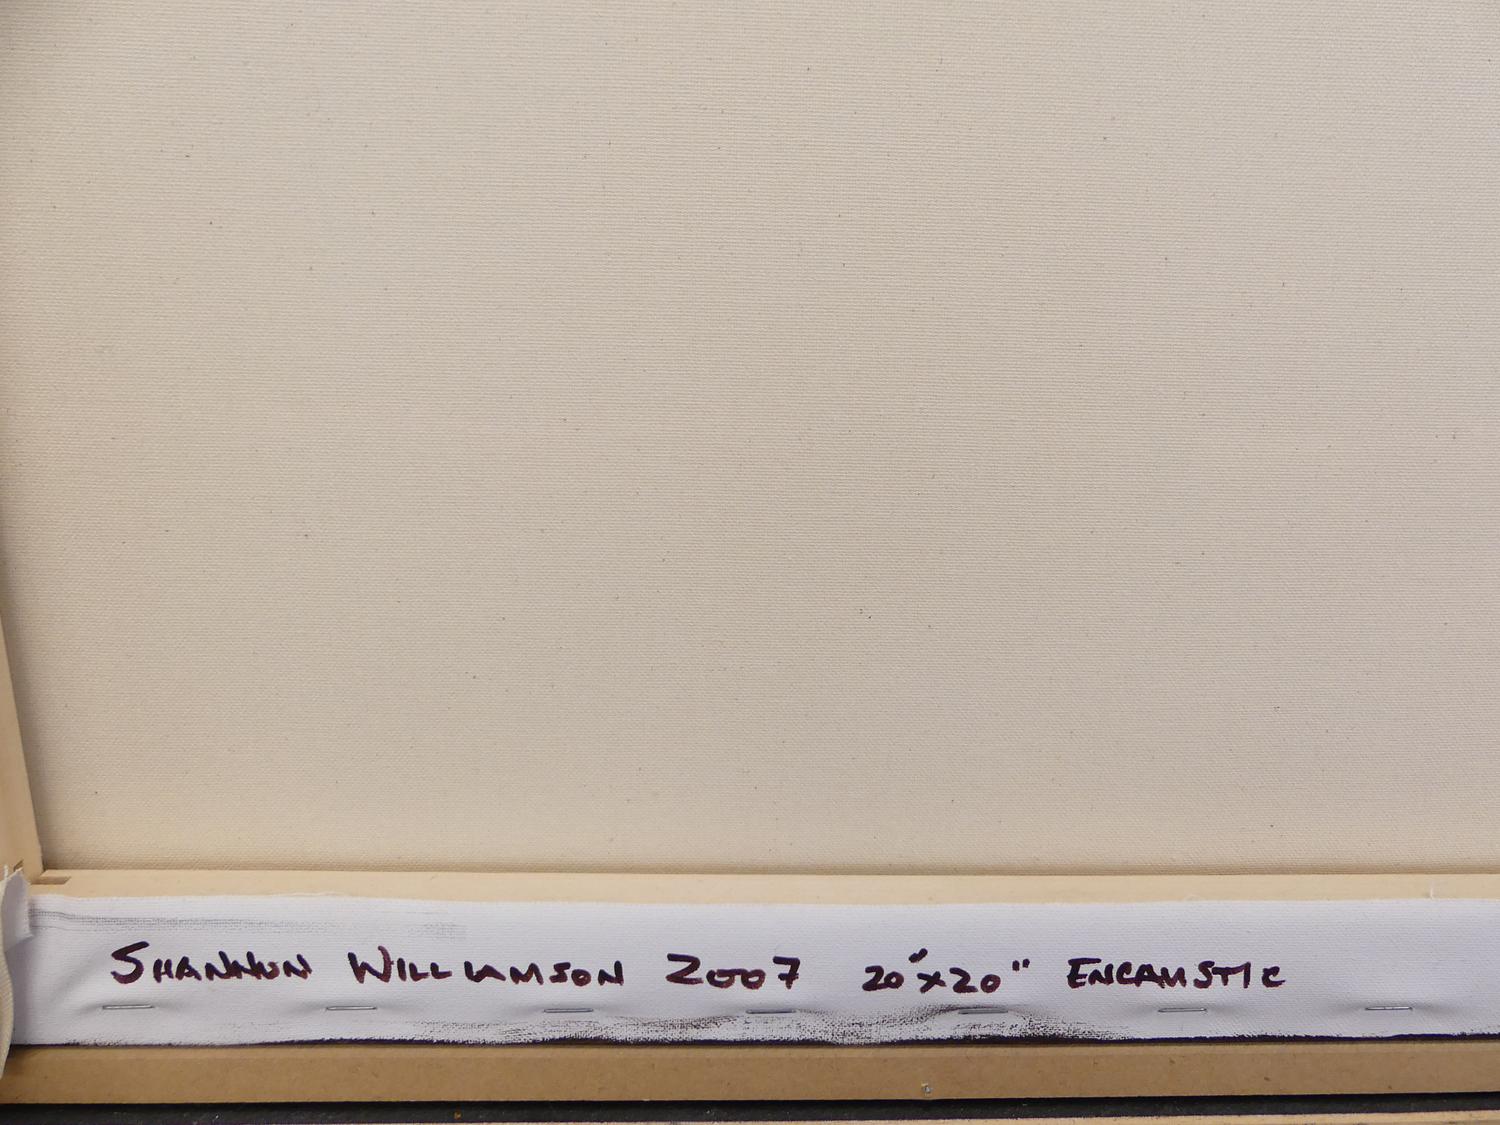 SHANNON WILLIAMSON 2007 20"x20" ENCAUSTIC